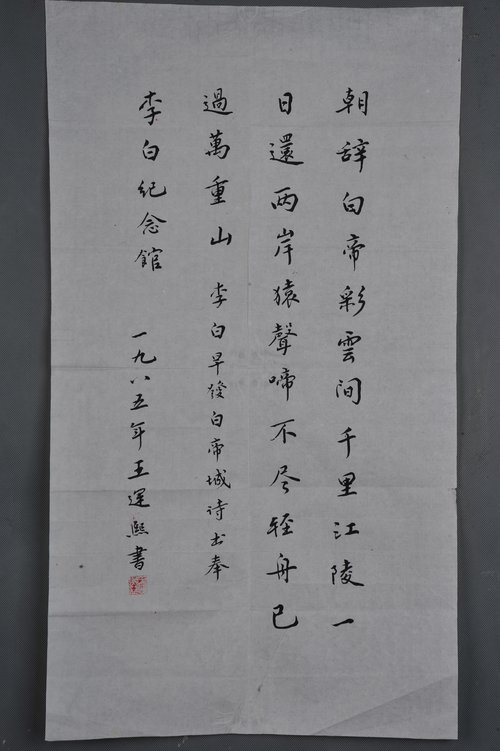 朝辞白帝彩雲间千里江陵一
日還两岸猿聲啼不尽轻舟已
過萬重山 李白早發白帝城诗书奉
李白纪念館 一九八五年王運熙書